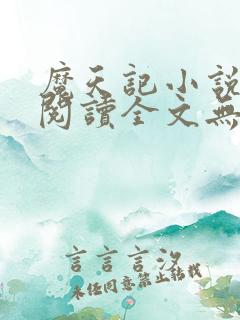 魔天記小說
閱讀全文無
言言言汐
未经同意禁止转载